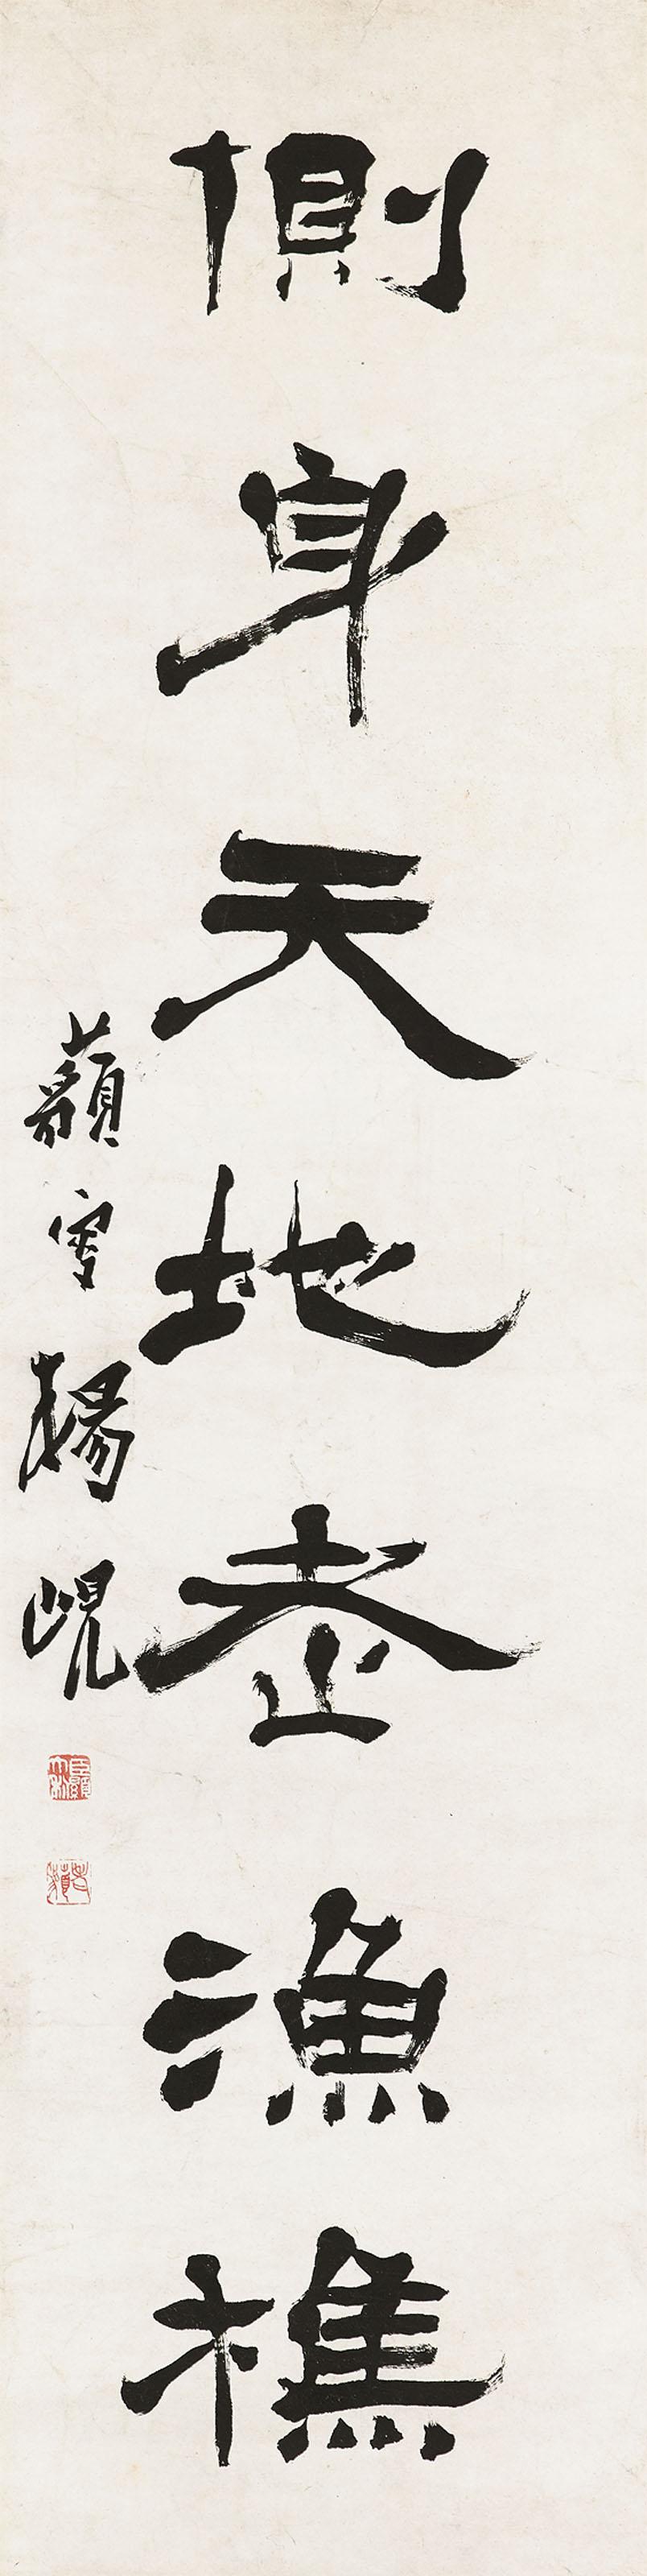 側身天地老漁樵
藐叟楊峴